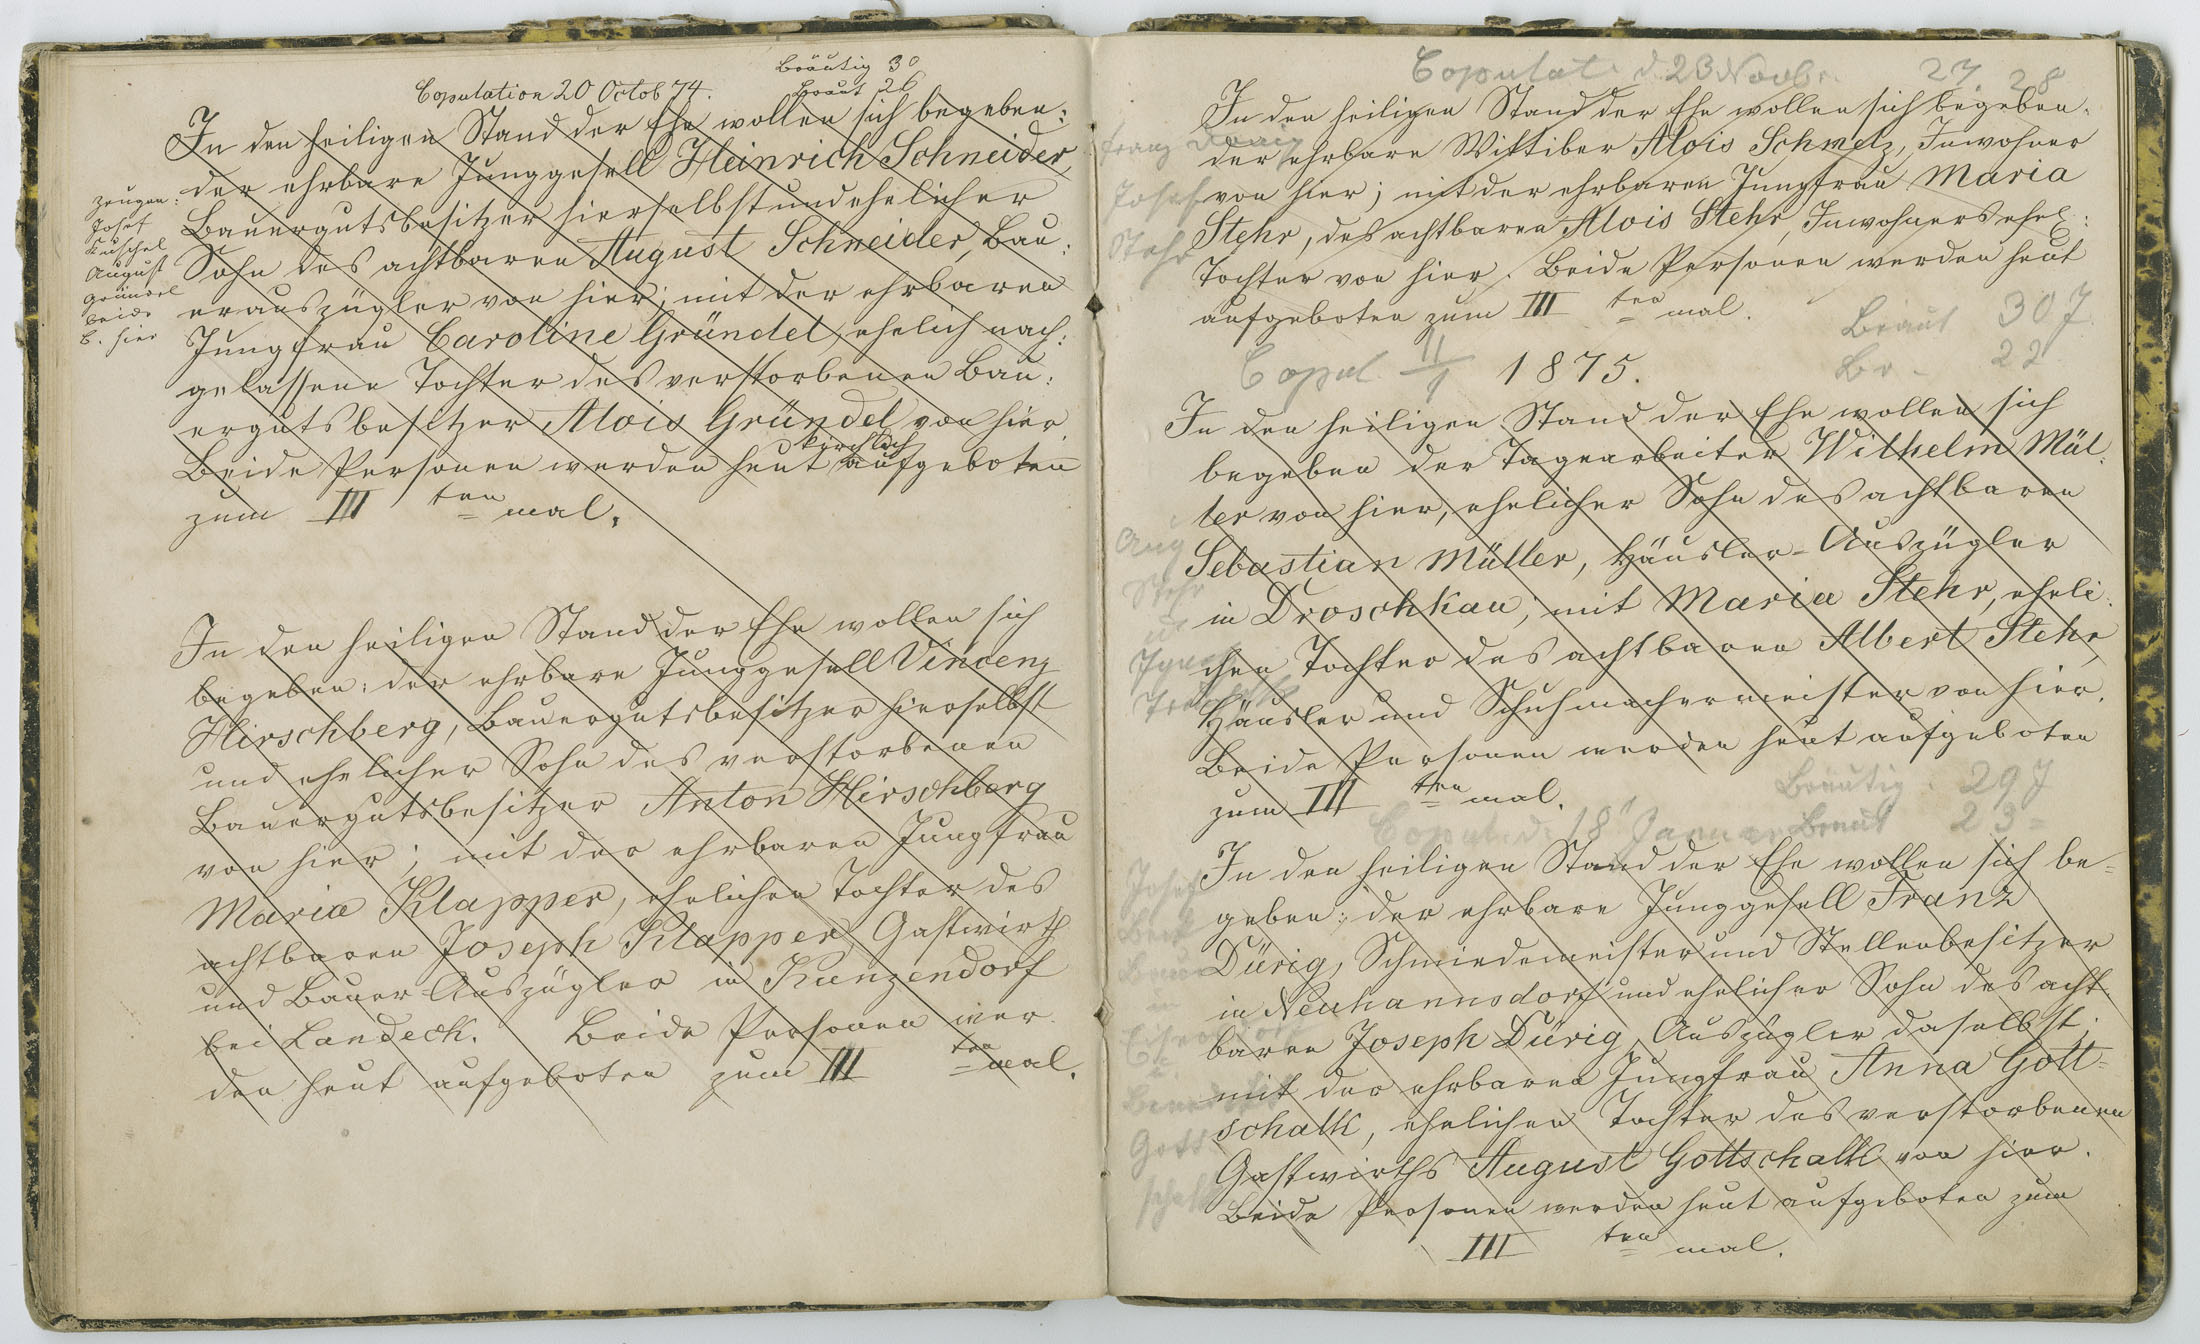 Bräutig 30
Copulation 20 Octob 74. Braut 26
In den heiligen Stand der Ehe wollen sich begeben:
der ehrbare Junggesell Heinrich Schneider,
Bauergutsbesitzer hierselbst und ehelicher
Sohn des achtbaren August Schneider, Bau:
erauszügler von hier; mit der ehrbaren
Jungfrau Caroline Gründel, ehelich nach:
gelassene Tochter des verstorbenen Bau:
ergutsbesitzer Alois Gründel von hier.
Beide Personen werden heut kirchlich aufgeboten
zum III ten mal.
Zeugen:
Josef
Kuschel
August
Gründel
beide
b. hier
In den heiligen Stand der Ehe wollen sich
begeben: der ehrbare Junggesell Vincenz
Hirschberg, Bauergutsbesitzer hierselbst
und ehelicher Sohn des verstorbenen
Bauergutsbesitzer Anton Hirschberg
von hier; mit der ehrbaren Jungfrau
Maria Klapper, ehelichen Tochter des
achtbaren Joseph Klapper, Gastwirth
und Bauer-Auszügler in Kunzendorf
bei Landeck. Beide Personen wer
den heut aufgeboten zum III ten mal.
Copulat d 23 Novbr 27. 28
In den heiligen Stand der Ehe wollen sich begeben.
der ehrbare Wittiber Alois Schmelz, Inwohner
von hier; mit der ehrbaren Jungfrau Maria
Stehr, des achtbaren Alois Stehr, Inwohners ehel:
Tochter von hier. Beide Personen werden heut
aufgeboten zum III ten mal.
Franz
Josef
Stehr
Braut 30 J.
Copul. 11/1 1875. Br - 22
In den heiligen Stand der Ehe wollen sich
begeben der Tagearbeiter Wilhelm Mül:
ler von hier, ehelicher Sohn des achtbaren
Sebastian Müller, Häusler-Auszügler
in Droschkau; mit Maria Stehr, eheli:
chen Tochter des achtbaren Albert Stehr,
Häusler und Schuhmachermeister von hier.
Beide Personen werden heut aufgeboten
zum III ten mal.
Aug
Stehr
Bräutig. 29 J
Copul. d. 18 Januar Braut 23 =
In den heiligen Stand der Ehe wollen sich be=
geben: der ehrbare Junggesell Franz
Dürig, Schmiedemeister und Stellenbesitzer
in Neuhannsdorf und ehelicher Sohn des acht:
baren Joseph Dürig, Auszügler daselbst;
mit der ehrbaren Jungfrau Anna Gott=
schalk, ehelichen Tochter des verstorbenen
Gastwirths August Gottschalk von hier.
Beide Personen werden heut aufgeboten zum
III ten mal.
Josef
Gott
schalk